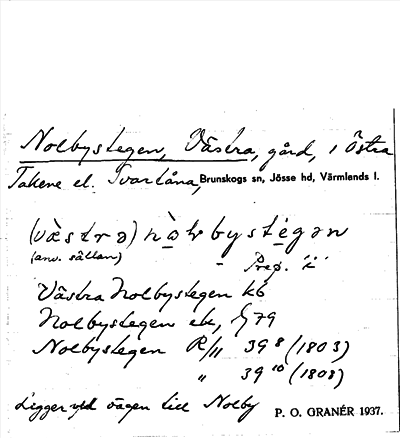 Nolbystegen, Västra, gård, i Östra
Takene el. Tvartåna, Brunskogs sn, Jösse hd, Värmlands l.
(væ̀strə) nɷ̀lbystegən
(anv. sällan) - Prep. "i"
Västra Nolbystegen k6
Nolbystegen ek, 79
Nolbystegen R/11 39⁸ (1803)
" 39¹⁰ (1808)
Ligger vid vägen till Nolby P. O. GRANÉR 1937.